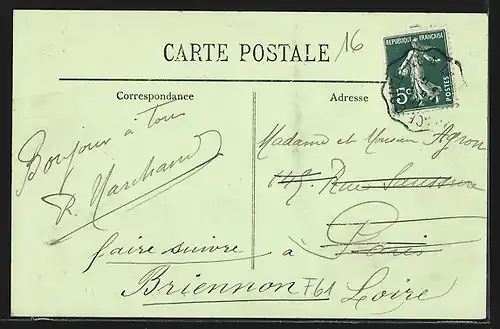 CARTE POSTALE
16
REPUBLIQUE FRANÇAISE
5c
POSTES
Correspondance
Adresse
Bonjour à tous
R. Marchand
Madame et Monsieur Agron
145. Rue Saussure
faire suivre à Paris
Briennon F61 Loire